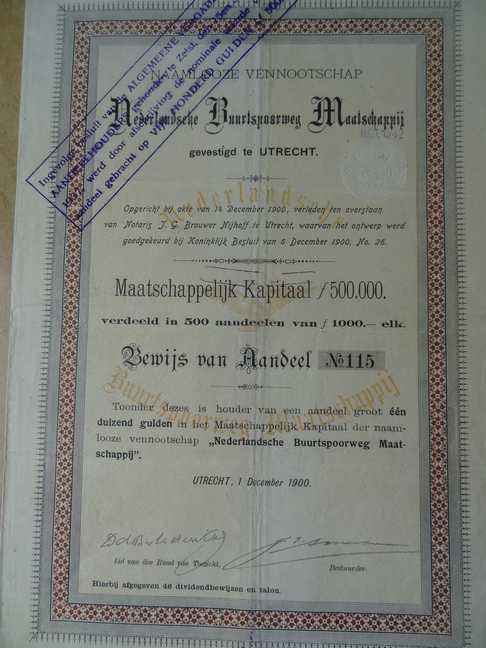 Ingevolge besluit van de ALGEMEENE
AANDEELHOUDERS gehouden te Zeist
werd door afschrijving de nominale waarde
aandeel gebracht op VIJF HONDERD GULDEN
NAAMLOOZE VENNOOTSCHAP
Nederlandsche Buurtspoorweg Maatschappij
gevestigd te UTRECHT.
Nederlandsche
Opgericht bij akte van 14 December 1900, verleden ten overstaan
van Notaris J. G. Brouwer Nijhoff te Utrecht, waarvan het ontwerp werd
goedgekeurd bij Koninklijk Besluit van 5 December 1900, No. 26.
Maatschappelijk Kapitaal f 500.000.
verdeeld in 500 aandeelen van f 1000.— elk.
Bewijs van Aandeel No 115
Buurtspoorweg Maatschappij
Toonder dezes is houder van een aandeel groot één
duizend gulden in het Maatschappelijk Kapitaal der naam-
looze vennootschap „Nederlandsche Buurtspoorweg Maat-
schappij".
UTRECHT, 1 December 1900.
Lid van den Raad van Toezicht,
Bestuurder.
Hierbij afgegeven 46 dividendbewijzen en talon.